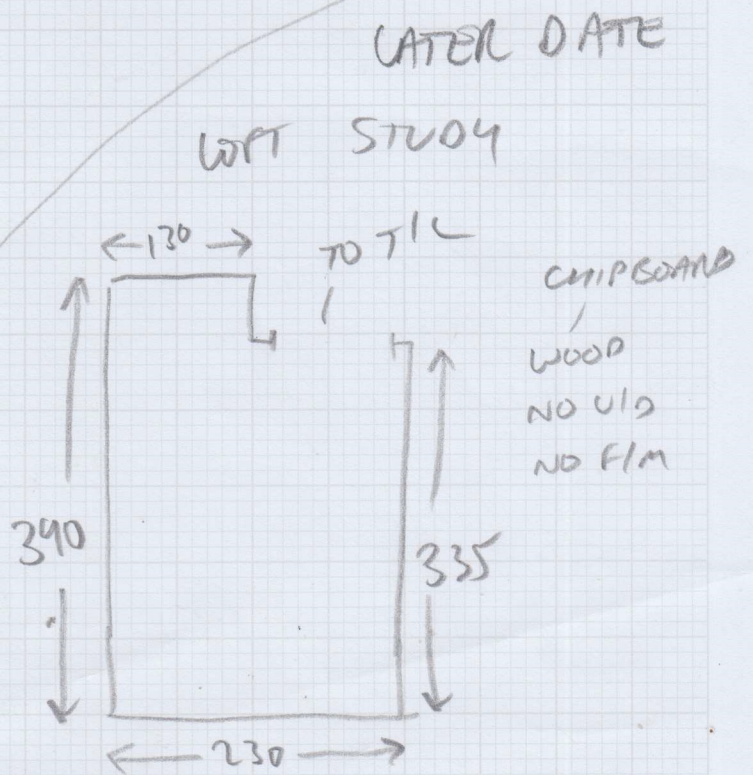 LATER DATE
LOFT STUDY
130
TO T/L
CHIPBOARD
/
WOOD
NO U/D
NO F/M
390
335
230